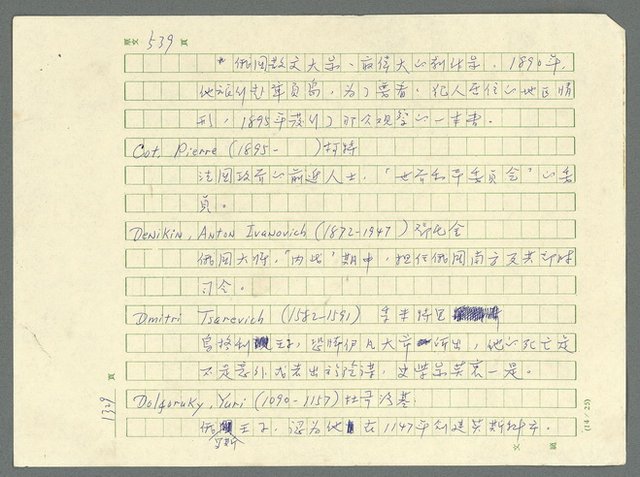 原文 539 頁
*俄國散文大家、最偉大的劇作家。1890年,
他旅行赴庫頁島,為了要看,犯人居住的地區情
形,1895年發行了那次視察的一本書。
Cot, Pierre (1895-     )柯特
法國政界的前進人士,"世界和平委員會"的委
員。
Denikin, Anton Ivanovich (1872-1947)鄧尼金
俄國大將,"內戰"期中,擔任俄國南方反共部隊
司令。
Dmitri Tsarevich (1582-1591) 季米特里
烏格利 王子,恐怖伊凡大帝 所出,他的死亡是
不是意外或者出於陰謀,史學家莫衷一是。
Dolgoruky, Yuri (1090-1157)杜哥洛基
俄羅斯王子,認為他 在1147年創建莫斯科市。
頁 1329
(14/25)
文 稿